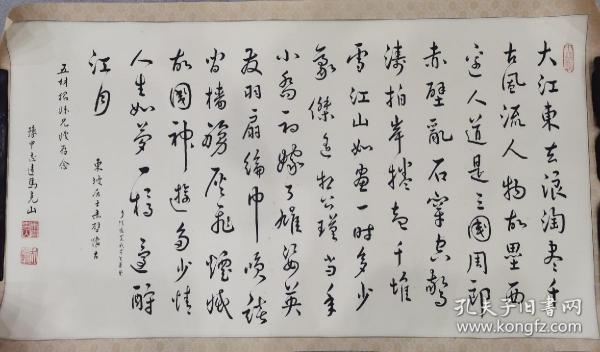 大江東去浪淘盡千
古風流人物故壘西
邊人道是三國周郎
赤壁亂石穿空驚
濤拍岸捲起千堆
雪江山如畫一時多少
豪傑遙想公瑾當年
小喬初嫁了雄姿英
發羽扇綸巾談笑
間檣櫓灰飛煙滅
故國神遊多少情
人生如夢一樽還酹
江月
東坡居士赤壁懷古
孔夫子旧书网
www.kongfz.com